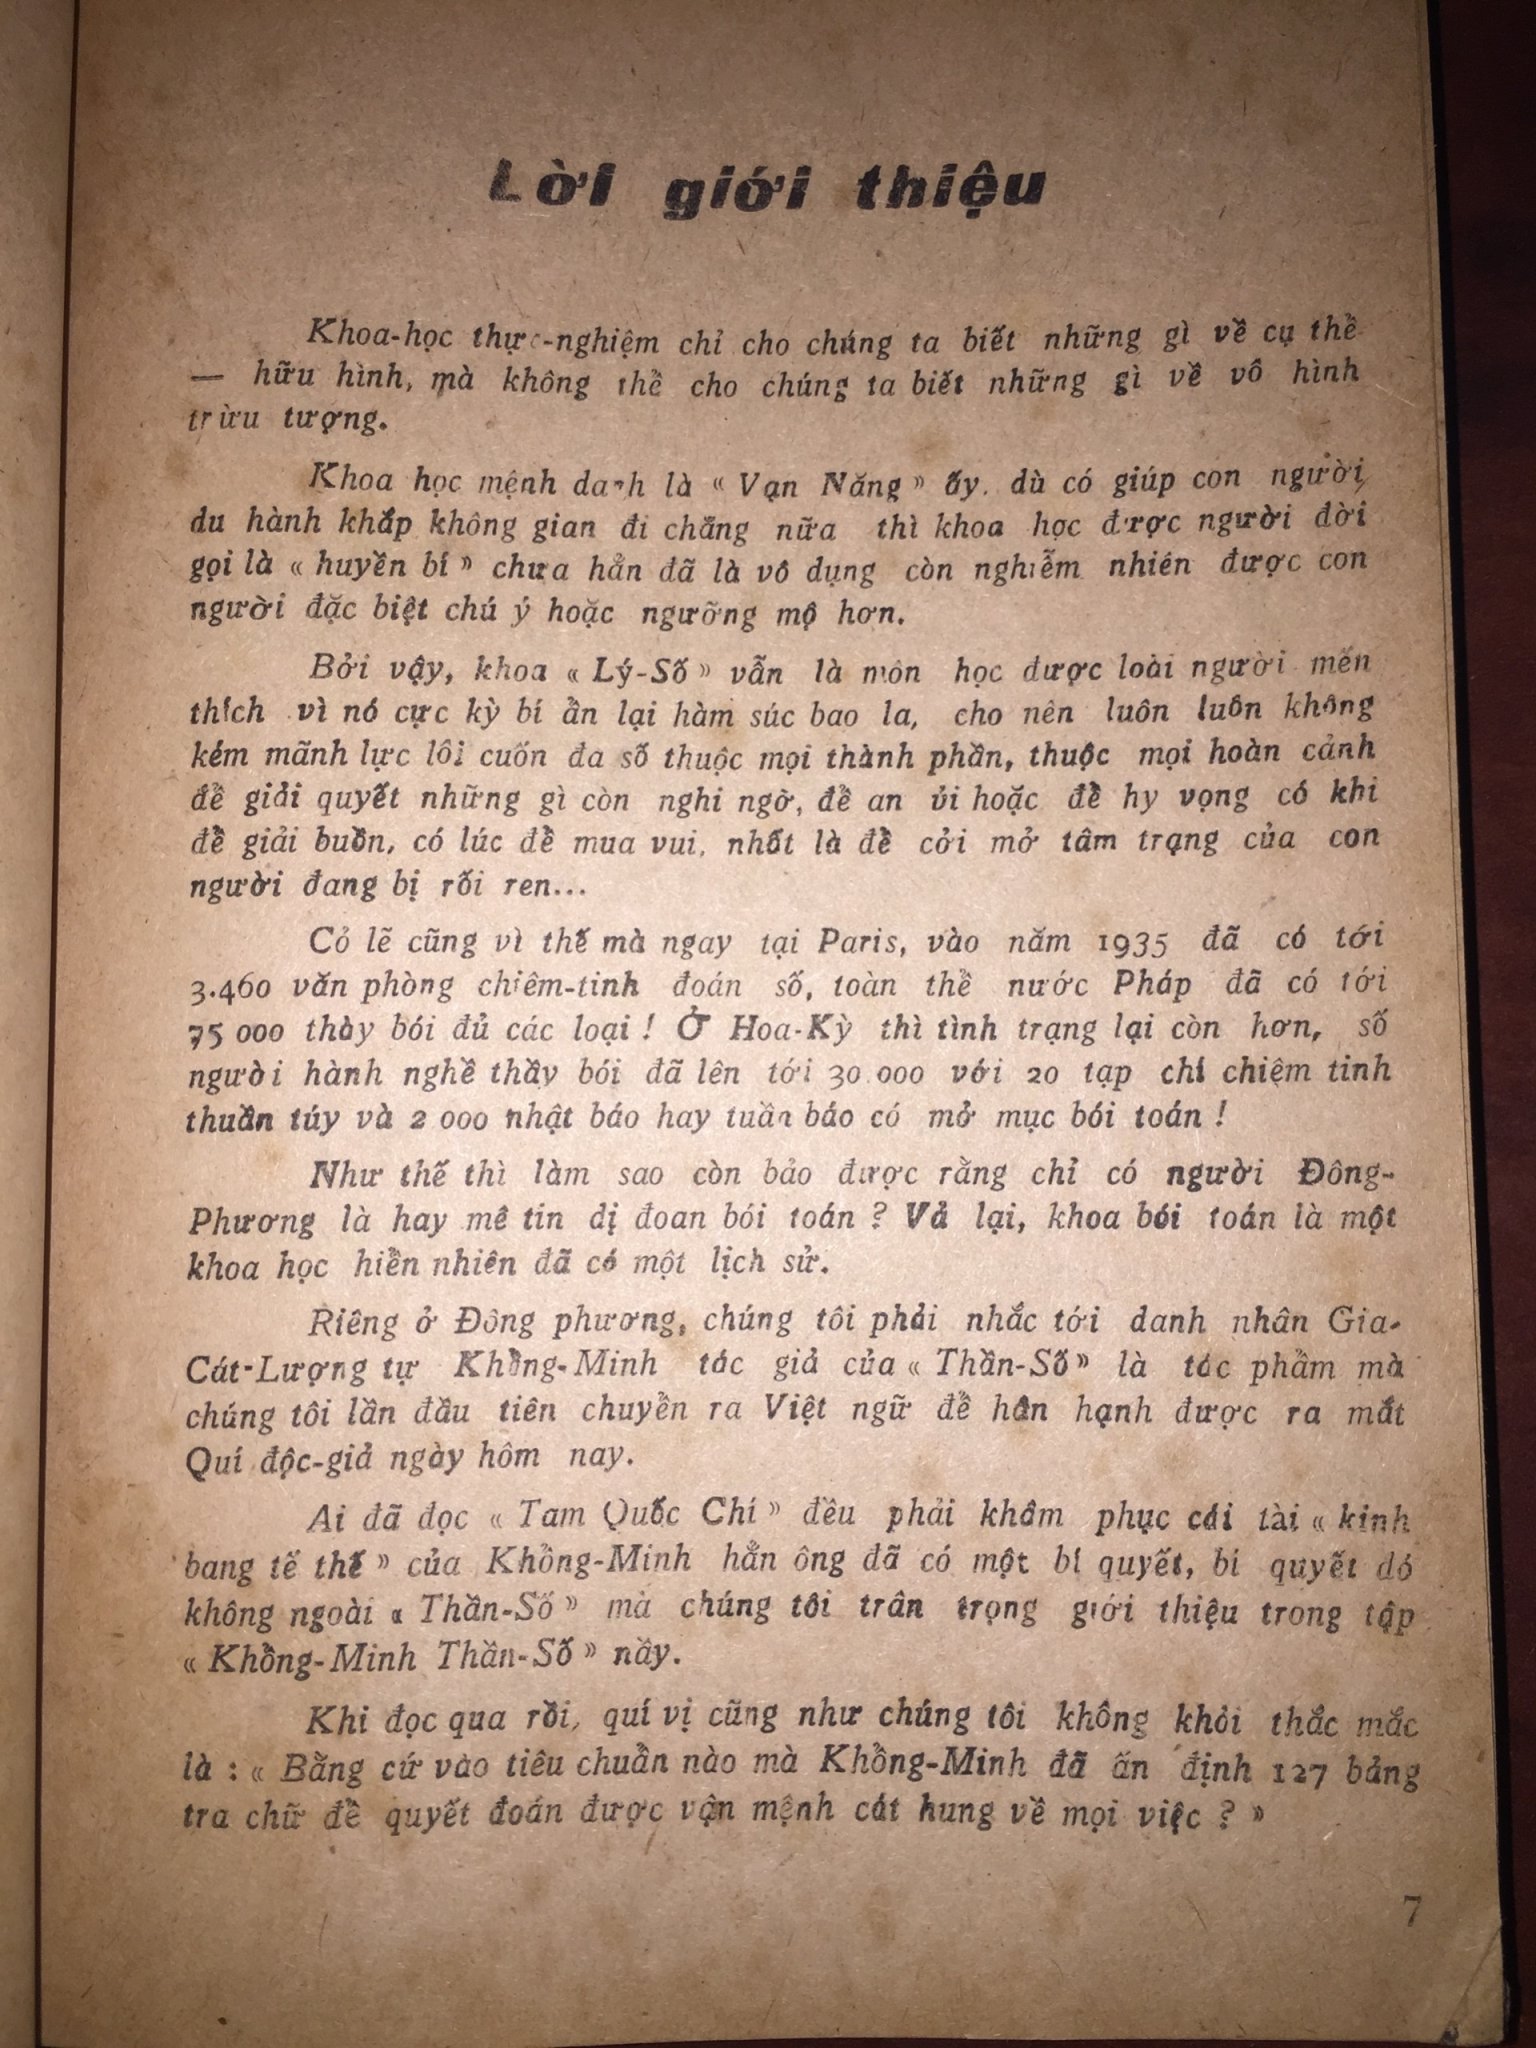 Lời giới thiệu
Khoa-học thực-nghiệm chỉ cho chúng ta biết những gì về cụ thể
— hữu hình, mà không thể cho chúng ta biết những gì về vô hình
trừu tượng.
Khoa học mệnh danh là « Vạn Năng » ấy. dù có giúp con người
du hành khắp không gian đi chăng nữa thì khoa học được người đời
gọi là « huyền bí » chưa hẳn đã là vô dụng còn nghiễm nhiên được con
người đặc biệt chú ý hoặc ngưỡng mộ hơn.
Bởi vậy, khoa « Lý-Số » vẫn là môn học được loài người mến
thích vì nó cực kỳ bí ẩn lại hàm súc bao la, cho nên luôn luôn không
kém mãnh lực lôi cuốn đa số thuộc mọi thành phần, thuộc mọi hoàn cảnh
để giải quyết những gì còn nghi ngờ, để an ủi hoặc để hy vọng có khi
để giải buồn, có lúc để mua vui. nhất là để cởi mở tâm trạng của con
người đang bị rối ren...
Cỏ lẽ cũng vì thế mà ngay tại Paris, vào năm 1935 đã có tới
3.460 văn phòng chiêm-tinh đoán số, toàn thể nước Pháp đã có tới
75 000 thày bói đủ các loại ! Ở Hoa-Kỳ thì tình trạng lại còn hơn, số
người hành nghề thầy bói đã lên tới 30.000 với 20 tạp chí chiệm tinh
thuần túy và 2 000 nhật báo hay tuần báo có mở mục bói toán !
Như thế thì làm sao còn bảo được rằng chỉ có người Đông-
Phương là hay mê tin dị đoan bói toán ? Vả lại, khoa bói toán là một
khoa học hiển nhiên đã có một lịch sử.
Riêng ở Đông phương, chúng tôi phải nhắc tới danh nhân Gia-
Cát-Lượng tự Khồng-Minh tác giả của « Thần-Số » là tác phẩm mà
chúng tôi lần đầu tiên chuyển ra Việt ngữ để hân hạnh được ra mắt
Quí độc-giả ngày hôm nay.
Ai đã đọc « Tam Quốc Chí » đều phải khâm phục cái tài « kinh
bang tế thế » của Khổng-Minh hẳn ông đã có một bí quyết, bí quyết đó
không ngoài « Thần-Số » mà chúng tôi trân trọng giới thiệu trong tập
« Khồng-Minh Thần-Số » nầy.
Khi đọc qua rồi, quí vị cũng như chúng tôi không khỏi thắc mắc
là : « Bằng cứ vào tiêu chuẩn nào mà Khổng-Minh đã ấn định 127 bảng
tra chữ để quyết đoán được vận mệnh cát hung về mọi việc ? »
7